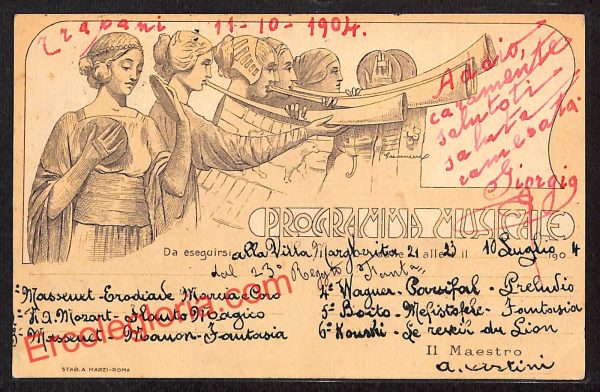 Trapani 11-10-1904.
Addio,
caramente
salutoti
saluta
Giorgio
PROGRAMMA MUSICALE
Da eseguirsi alla Villa Margherita dalle ore 21 alle 23 il 10 Luglio 1904
dal 23° Reggto Fant.
1° Massenet - Erodiade Marcia e Coro
2° Mozart - Flauto Magico
3° Massenet - Manon - Fantasia
4° Wagner - Parsifal - Preludio
5° Boito - Mefistofele - Fantasia
6° - Le reveil du Lion
Il Maestro
STAB. A. MARZI - ROMA
Ercolegloria.com